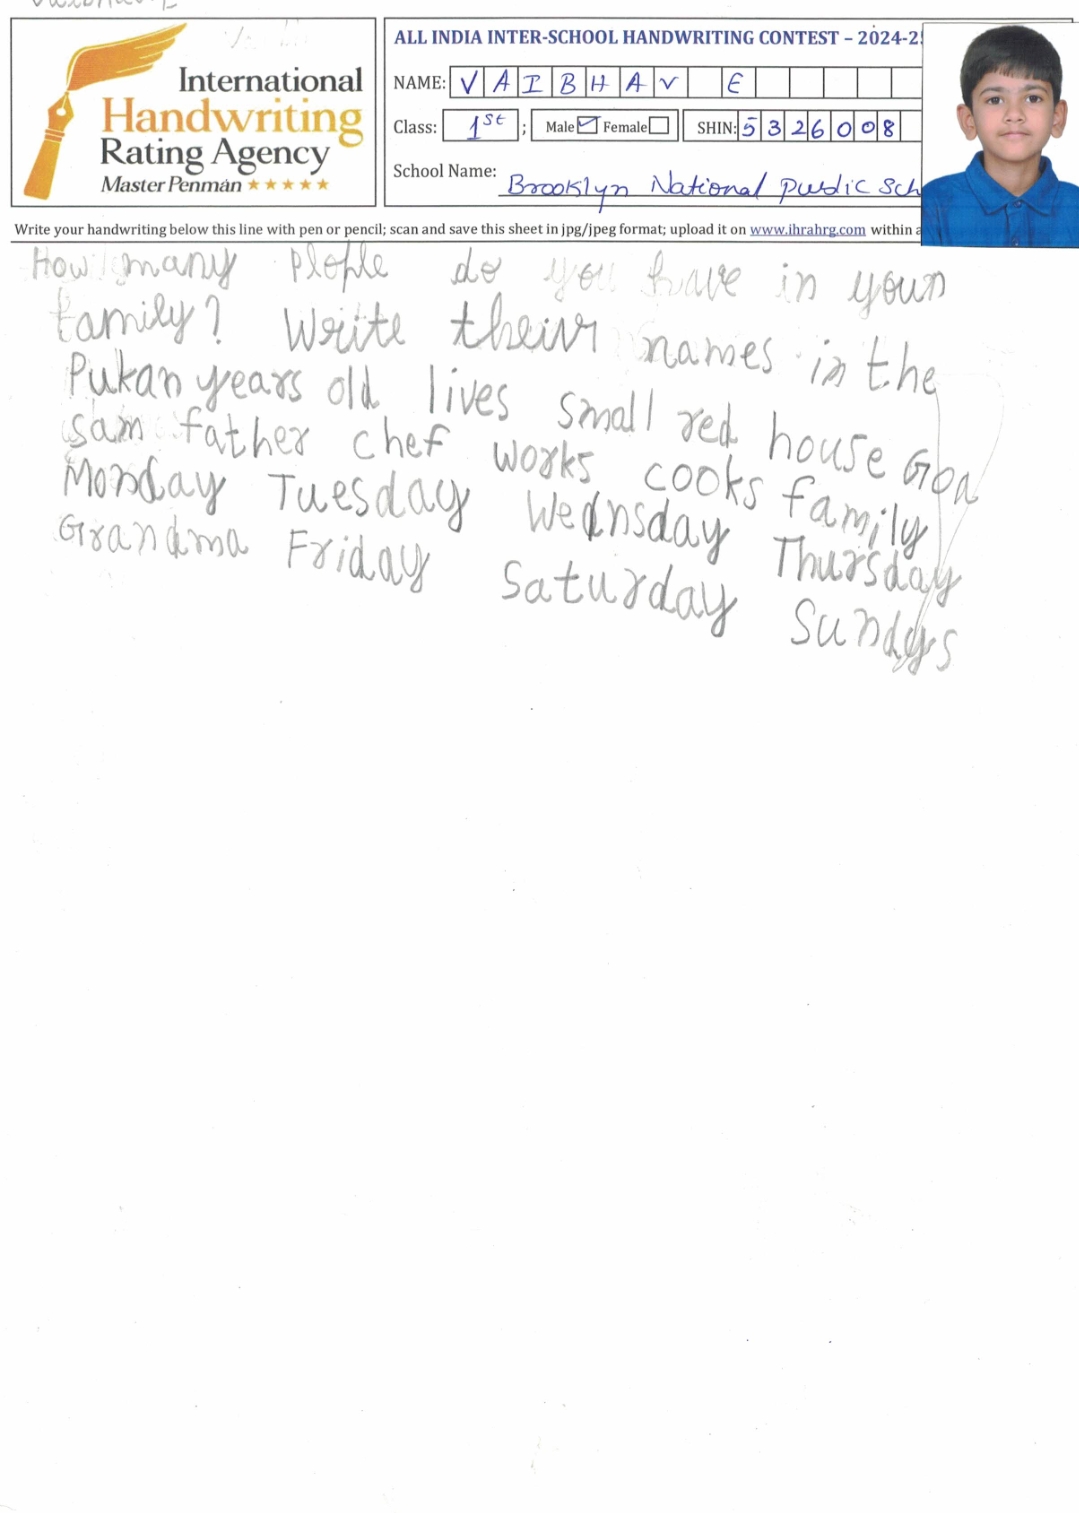 International
Handwriting
Rating Agency
Master Penman
ALL INDIA INTER-SCHOOL HANDWRITING CONTEST – 2024-2
NAME: VAIBHAV E
Class: 1st ; Male Female SHIN: 5326008
School Name: Brooklyn National Public Sch
Write your handwriting below this line with pen or pencil; scan and save this sheet in jpg/jpeg format; upload it on www.ihrahrg.com within a
How many plople do you have in youn
family? Write their names in the
Pukan years old lives small red house Goa
sam father chef works cooks family
Monday Tuesday Wednsday Thursday
Grandma Friday Saturday Sundys